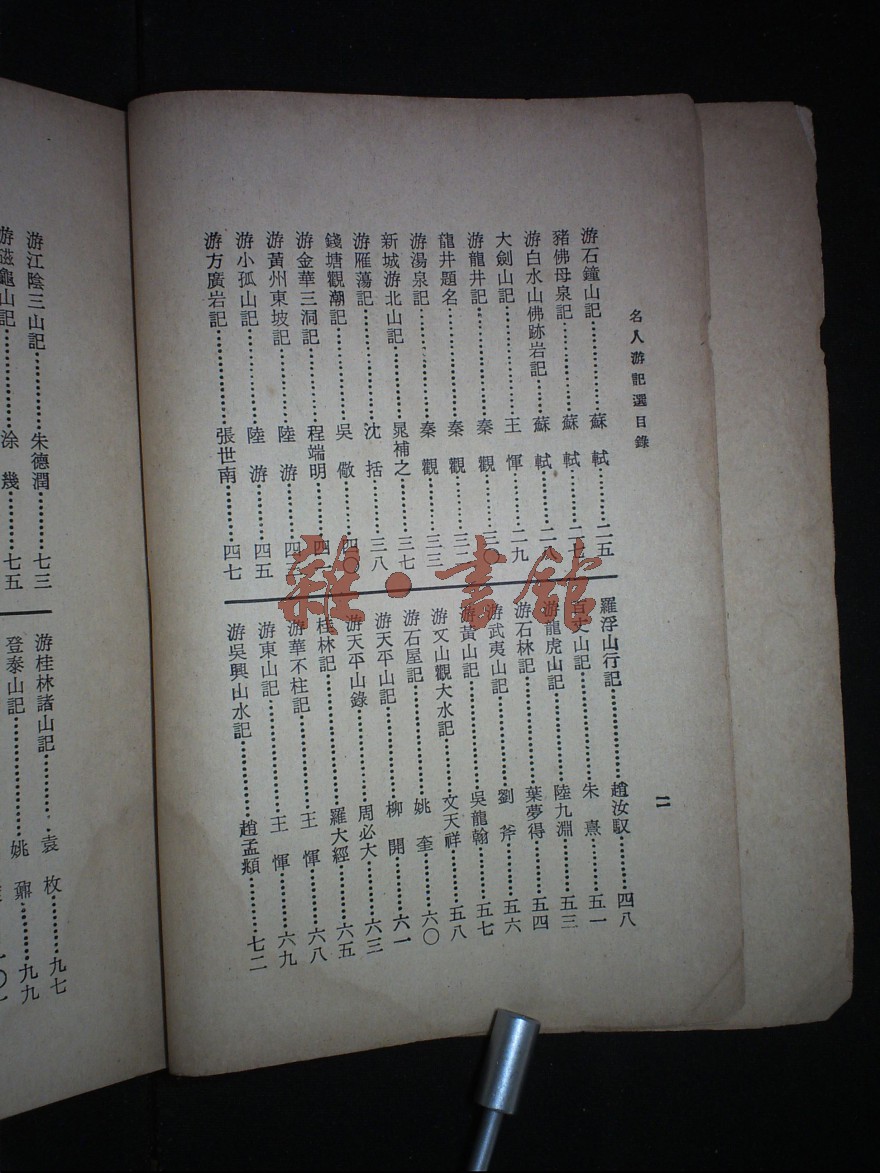 名人游記選目錄
二
游石鐘山記⋯⋯蘇軾⋯⋯二五
豬佛母泉記⋯⋯蘇軾⋯⋯二七
游白水山佛跡岩記⋯⋯蘇軾⋯⋯二八
大劍山記⋯⋯王惲⋯⋯二九
游龍井記⋯⋯秦觀⋯⋯三〇
龍井題名⋯⋯秦觀⋯⋯三
游湯泉記⋯⋯秦觀⋯⋯三三
新城游北山記⋯⋯晁補之⋯⋯三七
游雁蕩記⋯⋯沈括⋯⋯三八
錢塘觀潮記⋯⋯吳儆⋯⋯四〇
游金華三洞記⋯⋯程端明⋯⋯四
游黃州東坡記⋯⋯陸游⋯⋯四
游小孤山記⋯⋯陸游⋯⋯四五
游方廣岩記⋯⋯張世南⋯⋯四七
羅浮山行記⋯⋯趙汝馭⋯⋯四八
百丈山記⋯⋯朱熹⋯⋯五一
游龍虎山記⋯⋯陸九淵⋯⋯五三
游石林記⋯⋯葉夢得⋯⋯五四
游武夷山記⋯⋯劉斧⋯⋯五六
游黃山記⋯⋯吳龍翰⋯⋯五七
游文山觀大水記⋯⋯文天祥⋯⋯五八
游石屋記⋯⋯姚奎⋯⋯六〇
游天平山記⋯⋯柳開⋯⋯六一
游天平山錄⋯⋯周必大⋯⋯六三
桂林記⋯⋯羅大經⋯⋯六五
游華不柱記⋯⋯王惲⋯⋯六八
游東山記⋯⋯王惲⋯⋯六九
游吳興山水記⋯⋯趙孟頫⋯⋯七二
游江陰三山記⋯⋯朱德潤⋯⋯七三
游磁龜山記⋯⋯涂幾⋯⋯七五
游桂林諸山記⋯⋯袁枚⋯⋯九七
登泰山記⋯⋯姚鼐⋯⋯九九
雜·書館